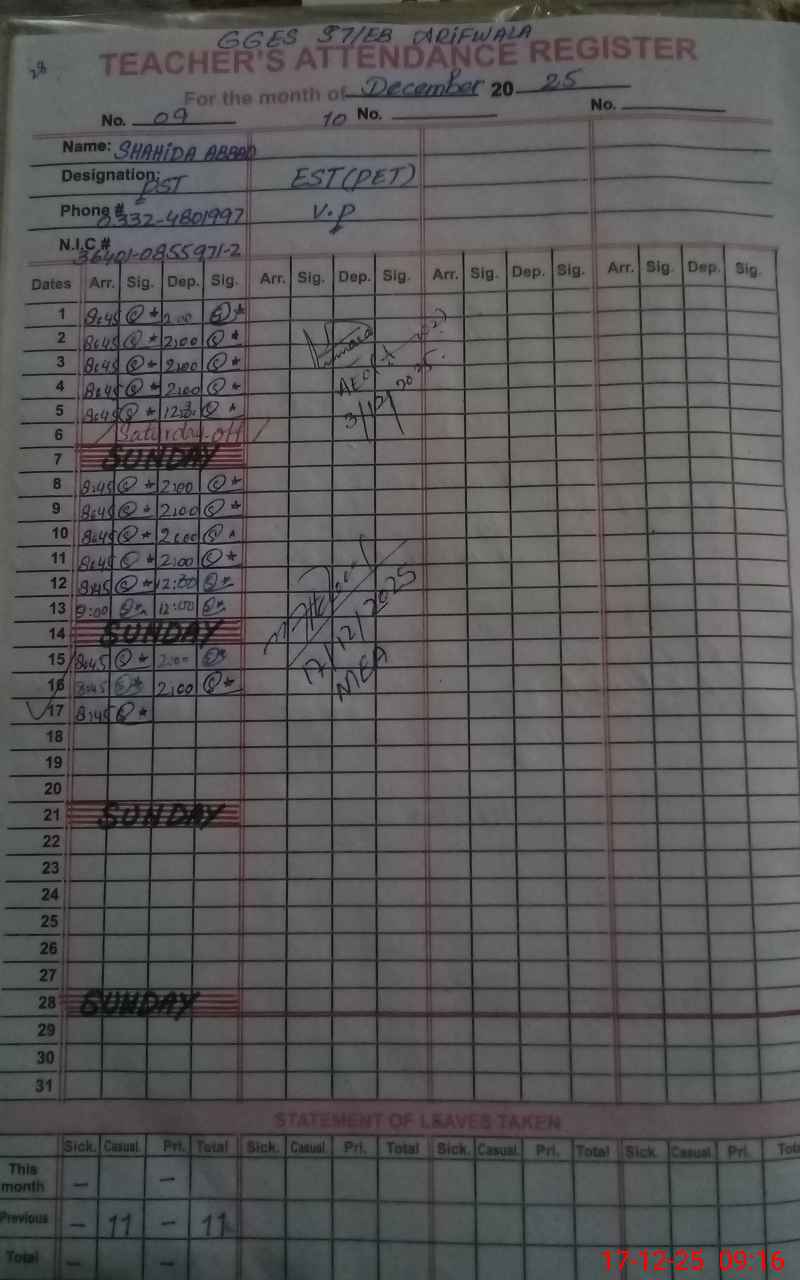 GGES 57/EB ARIFWALA
TEACHER'S ATTENDANCE REGISTER
For the month of December 20 25
No. 09 10 No. No.
Name: SHAHIDA ABBAD
Designation: PST EST(PET)
Phone # 0332-4801997 V.P
N.I.C # 36401-0855971-2
Dates Arr. Sig. Dep. Sig. Arr. Sig. Dep. Sig. Arr. Sig. Dep. Sig. Arr. Sig. Dep. Sig.
1 8:45 2:00
2 8:45 2:00
3 8:45 2:00
4 8:45 2:00
3/12/2025
5 8:45
6 Saturday off
7 SUNDAY
8 8:45 2:00
9 8:45 2:00
10 8:45 2:00
11 8:45 2:00
12 8:45 12:30
13 9:00 12:00
14 SUNDAY
17/12/2025
15 8:45 2:00
MEA
16 8:45 2:00
17 8:45
18
19
20
21 SUNDAY
22
23
24
25
26
27
28 SUNDAY
29
30
31
STATEMENT OF LEAVES TAKEN
Sick. Casual. Pri. Total Sick. Casual. Pri. Total Sick. Casual. Pri. Total Sick. Casual. Pri. Total
This month – –
Previous – 11 – 11
Total – –
17-12-25 09:16